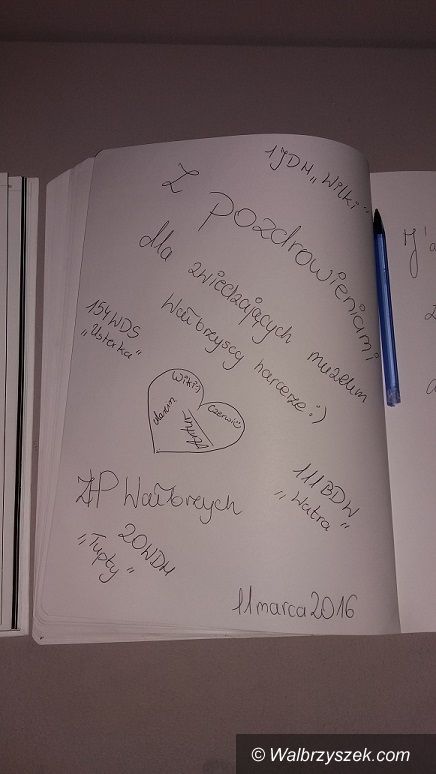 1 JDH „Wilki”
Z pozdrowieniami
dla zwiedzających muzeum
wałbrzyscy harcerze :)
154 WDS
„Usterka”
Wiki
Czerwiu
ZHP Wałbrzych
111 BDW
„Watra”
20 WDH
„Tupty”
11 marca 2016
© Walbrzyszek.com